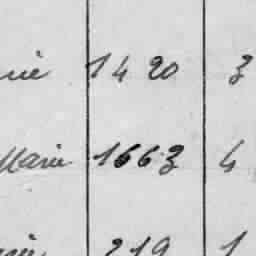 1420 3
Marie 1663 4
219 1